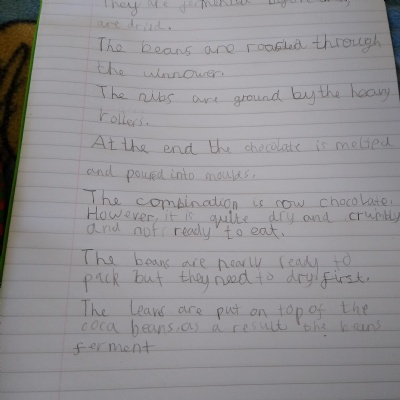 They are fermented before they
are dried.
The beans are roasted through
the winnower.
The nibs are ground by the heavy
rollers.
At the end the chocolate is molted
and poured into moulds.
The combination is now chocolate.
However, it is quite dry and crumbly
and not ready to eat.
The beans are nearly ready to
pack but they need to dry first.
The leavs are put on top of the
coca beans. as a result the beans
ferment